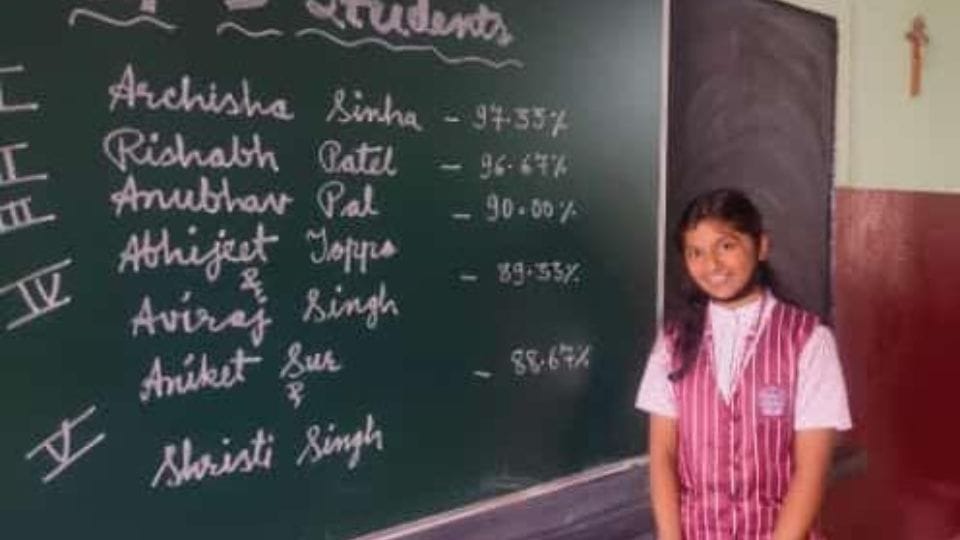 Top 5 Students
I Archisha Sinha - 97.33%
II Rishabh Patel - 96.67%
III Anubhav Pal - 90.00%
IV Abhijeet Toppo
& - 89.33%
Aviraj Singh
Aniket Sur - 88.67%
&
V
Shristi Singh